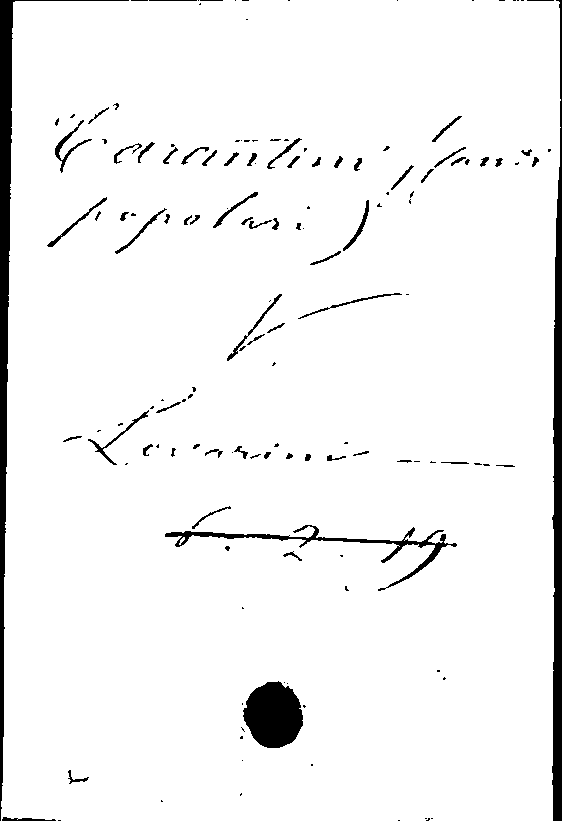 Tarantini (canti
popolari)
V.
Lovarini
6. 2. 19